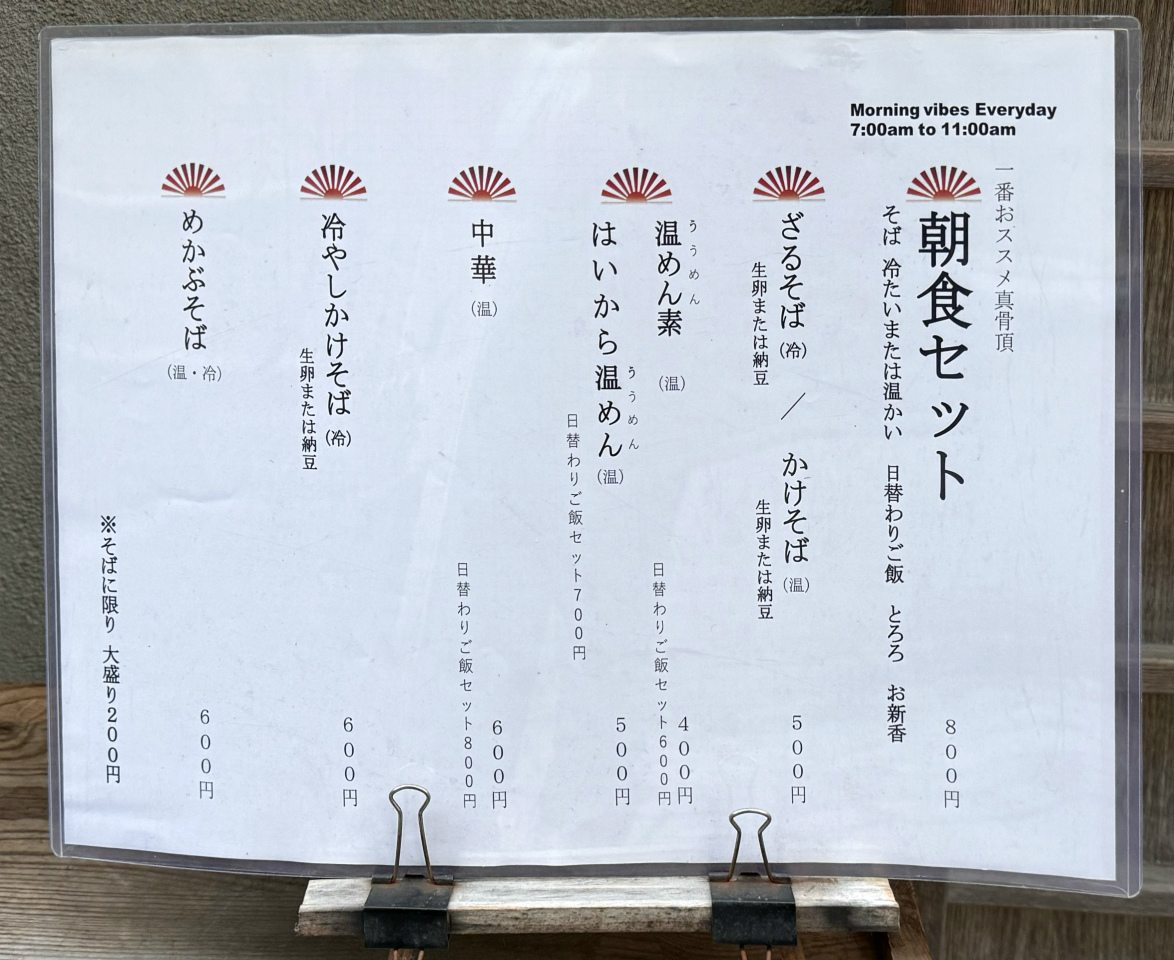 Morning vibes Everyday
7:00am to 11:00am
一番おススメ真骨頂
朝食セット
そば 冷たいまたは温かい 日替わりご飯 とろろ お新香
800円
ざるそば(冷)／かけそば(温)
生卵または納豆
生卵または納豆
500円
ううめん
温めん素 (温)
400円
日替わりご飯セット600円
ううめん
はいから温めん(温)
500円
日替わりご飯セット700円
中華(温)
600円
日替わりご飯セット800円
冷やしかけそば(冷)
生卵または納豆
600円
めかぶそば(温・冷)
600円
※そばに限り 大盛り200円